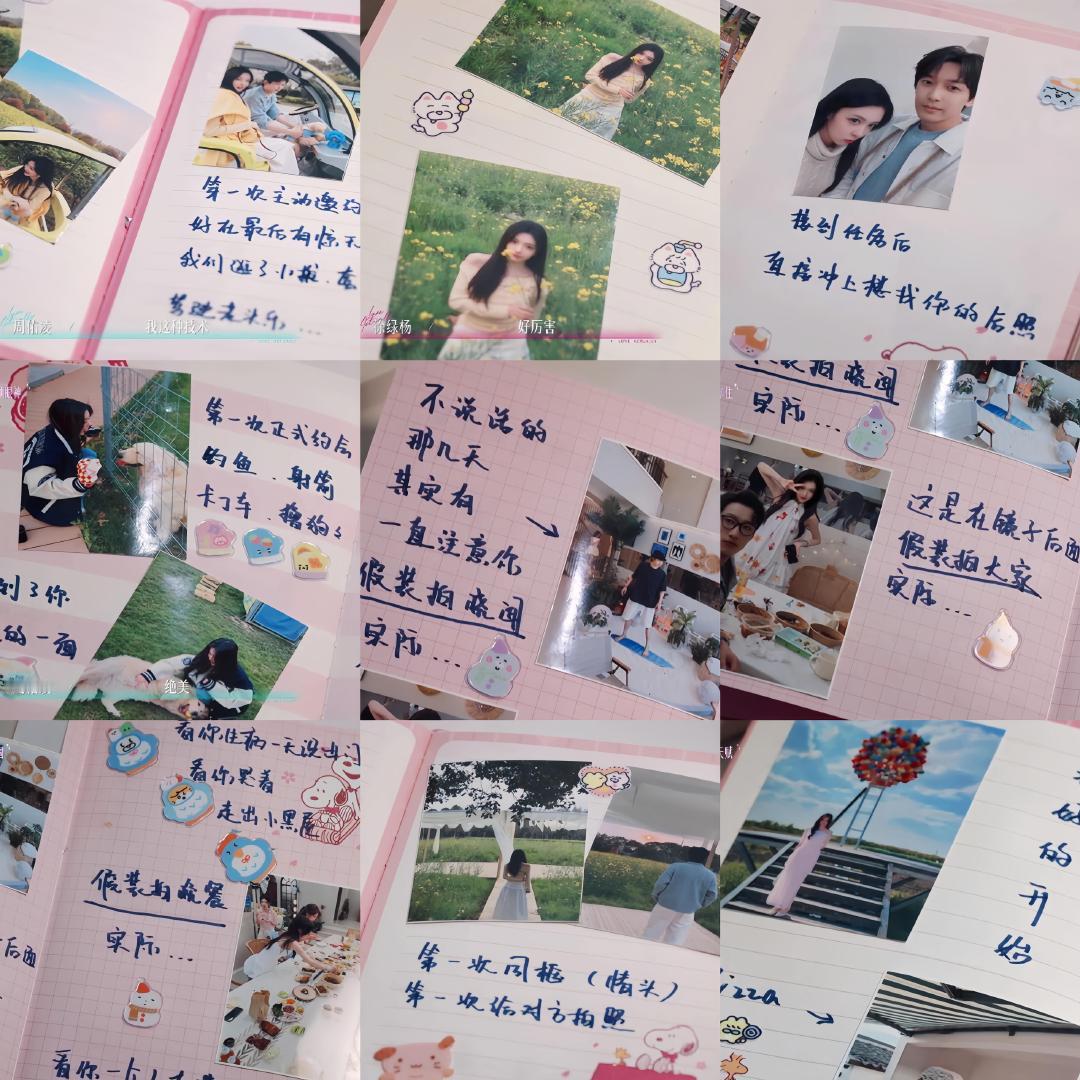 第一次主动邀约
好在最后有惊无
我们逛了小摊、套
驾驶老头乐，...
周佑凌 / 我这种技术
徐绿杨 / 好厉害
接到任务后
直接冲上楼找你的合照
第一次正式约会
钓鱼、射箭
卡丁车、撸狗
到了你
的一面
绝美
不说话的
那几天
其实有
一直注意你
假装拍晓闻
实际...
实际...
这是在镜子后面
假装拍大家
实际...
看你生病一天没出门
看你哭着
走出小黑屋
后面
假装拍晚餐
实际...
看你一个人
第一次同框（情头）
第一次给对方拍照
的
开
始
izza